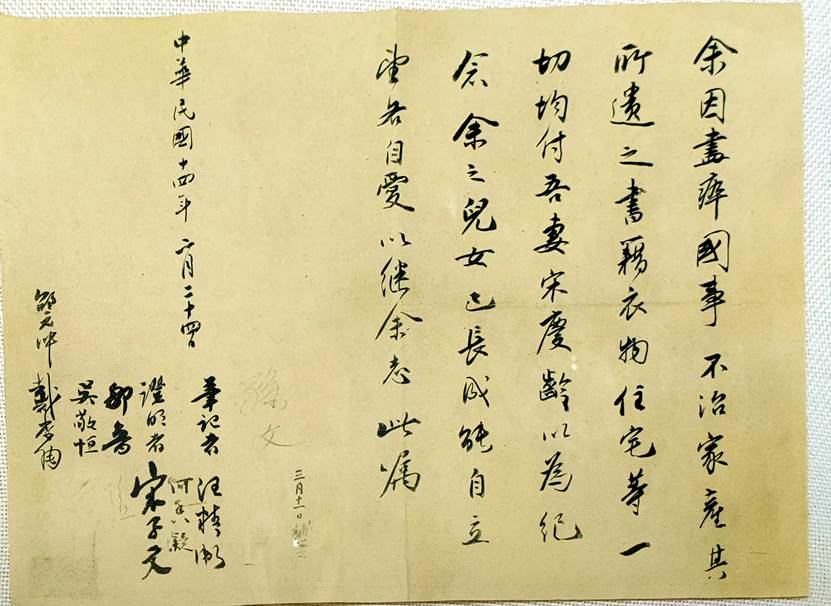 余因盡瘁國事不治家產其
所遺之書籍衣物住宅等一
切均付吾妻宋慶齡以為紀
念余之兒女已長成能自立
望各自愛以繼余志此囑
孫文
三月十一日補
中華民國十四年二月二十四日
筆記者 汪精衛
何香凝
證明者 宋子文
鄒魯
吳敬恒
邵元冲 戴季陶